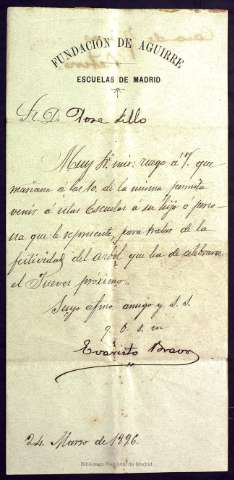 FUNDACIÓN DE AGUIRRE
ESCUELAS DE MADRID
Sr. D. Rosa Lillo
Muy Sr. mio: ruego a V. que
mañana a las 10 de la misma permita
venir á estas Escuelas a su hijo ó perso-
na que le represente, para tratar de la
festividad del Arbol que ha de celebrarse
el Jueves próximo.
Suyo afmo amigo y s. s.
q. b. s. m
Evaristo Bravo
24 Marzo de 1896.
Biblioteca Regional de Madrid